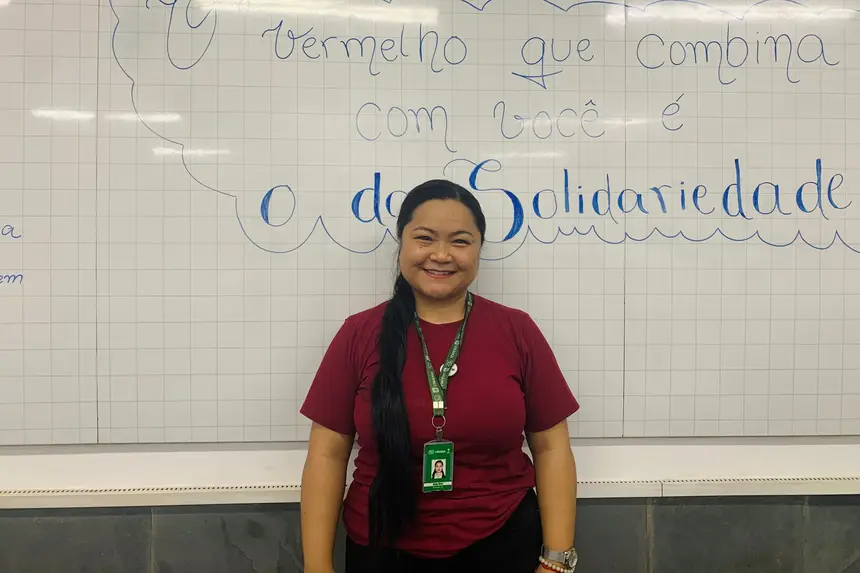 Vermelho que combina
com você é
o da Solidariedade
a
em